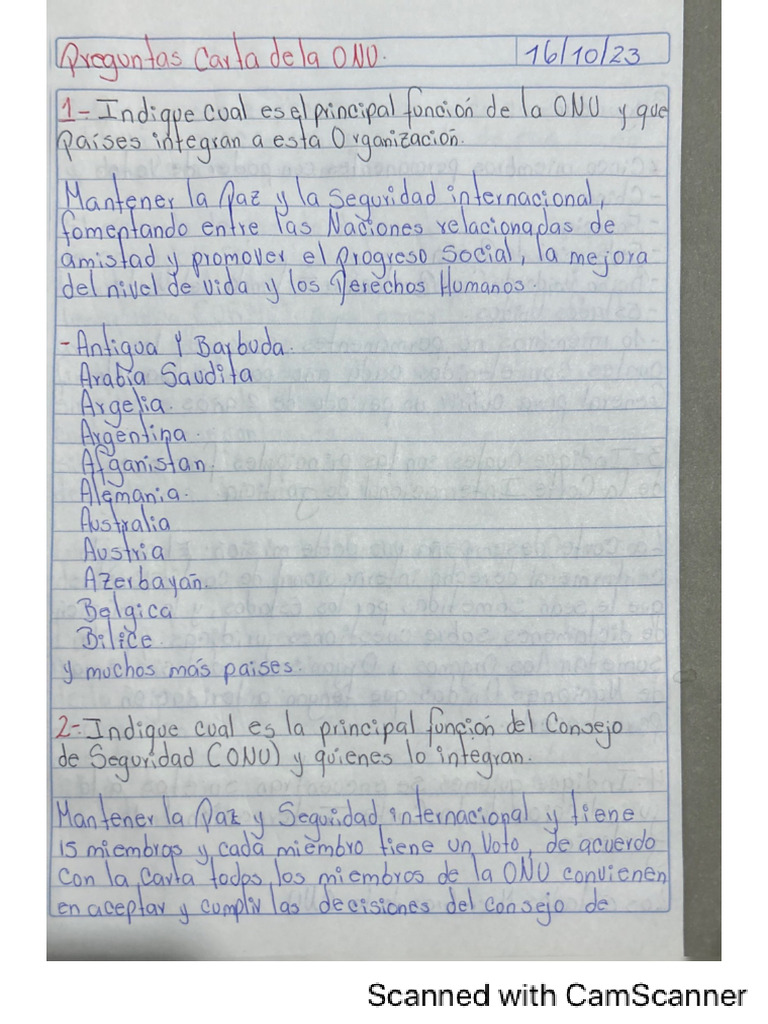 Preguntas Carta de la ONU.
16/10/23
1- Indique cual es el principal función de la ONU y que
países integran a esta Organización.
Mantener la Paz y la Seguridad internacional,
fomentando entre las Naciones relacionadas de
amistad y promover el Progreso Social, la mejora
del nivel de vida y los Derechos Humanos.
- Antigua Y Barbuda.
Arabia Saudita
Argelia.
Argentina.
Afganistan.
Alemania.
Australia
Austria
Azerbayán.
Belgica
Bilice.
y muchos más paises.
2- Indique cual es la principal función del Consejo
de Seguridad (ONU) y quienes lo integran.
Mantener la Paz y Seguridad internacional y tiene
15 miembros y cada miembro tiene un Voto, de acuerdo
con la Carta todos los miembros de la ONU convienen
en aceptar y cumplir las decisiones del consejo de
Scanned with CamScanner